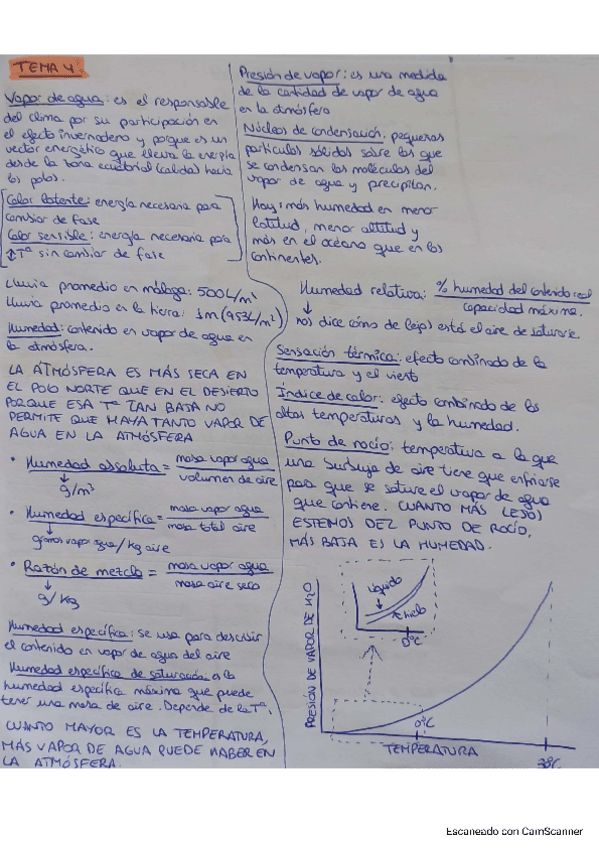 TEMA 4:
Vapor de agua: es el responsable
del clima por su participación en
el efecto invernadero y porque es un
vector energético que lleva la energía
desde la zona ecuatorial (calida) hacia
los polos.
Calor latente: energía necesaria para
cambiar de fase
Calor sensible: energía necesaria para
↕Tª sin cambiar de fase
Lluvia promedio en málaga: 500L/m²
Lluvia promedio en la tierra: 1m (953L/m²)
Humedad: contenido en vapor de agua en
la atmósfera.
LA ATMÓSFERA ES MÁS SECA EN
EL POLO NORTE QUE EN EL DESIERTO
PORQUE ESA Tª TAN BAJA NO
PERMITE QUE HAYA TANTO VAPOR DE
AGUA EN LA ATMÓSFERA
• Humedad absoluta = masa vapor agua / volumen de aire
↓
g/m³
• Humedad específica = masa vapor agua / masa total aire
↓
gramos vapor agua/kg aire
• Razón de mezcla = masa vapor agua / masa aire seco
↓
g/kg
Humedad específica: se usa para describir
el contenido en vapor de agua del aire
Humedad específica de saturación: es la
humedad específica máxima que puede
tener una masa de aire. Depende de la Tª.
CUANTO MAYOR ES LA TEMPERATURA,
MÁS VAPOR DE AGUA PUEDE HABER EN
LA ATMÓSFERA.
Presión de vapor: es una medida
de la cantidad de vapor de agua
en la atmósfera
Núcleos de condensación: pequeñas
partículas sólidas sobre las que
se condensan las moléculas del
vapor de agua y precipitan.
Hay más humedad en menor
latitud, menor altitud y
más en el océano que en los
continentes.
Humedad relativa: % humedad del contenido real / capacidad máxima.
↓
nos dice cómo de lejos está el aire de saturarse
Sensación térmica: efecto combinado de la
temperatura y el viento
Índice de calor: efecto combinado de las
altas temperaturas y la humedad.
Punto de rocío: temperatura a la que
una burbuja de aire tiene que enfriarse
para que se sature el vapor de agua
que contiene. CUANTO MÁS LEJOS
ESTEMOS DEL PUNTO DE ROCÍO,
MÁS BAJA ES LA HUMEDAD.
PRESIÓN DE VAPOR DE H2O
Líquido
Hielo
0ºC
0ºC
TEMPERATURA
38ºC
Escaneado con CamScanner